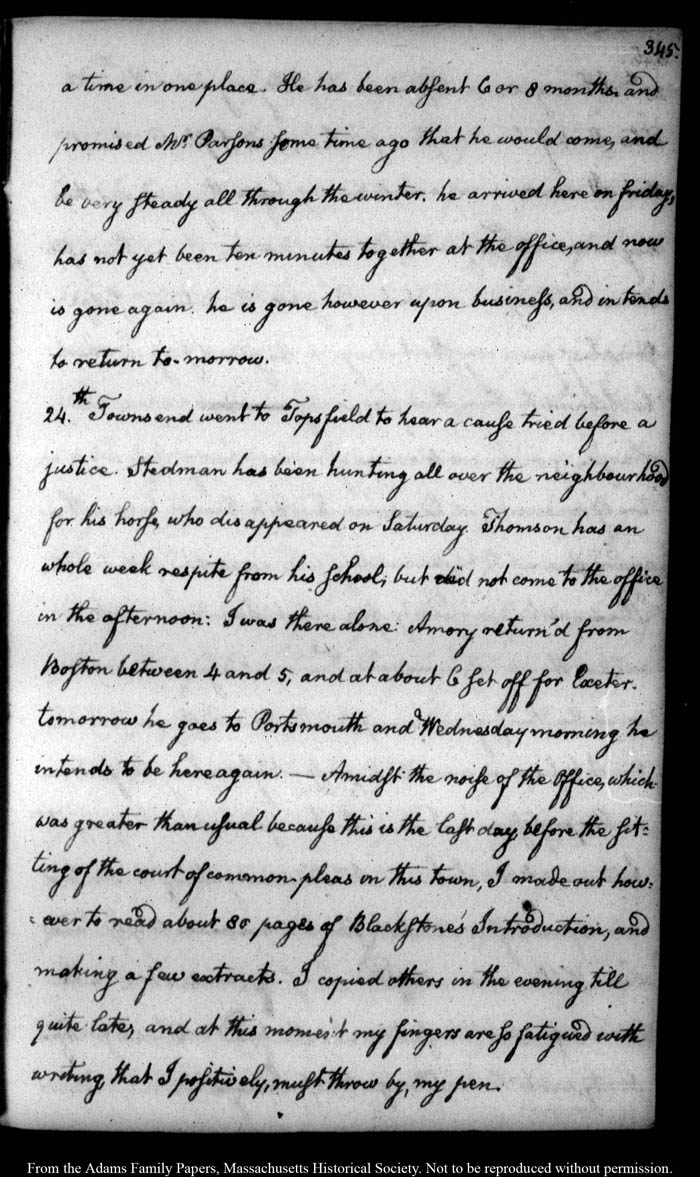 345.
a time in one place. He has been absent 6 or 8 months, and
promised Mr. Parsons some time ago that he would come, and
be very steady all through the winter. he arrived here on friday,
has not yet been ten minutes together at the office, and now
is gone again. he is gone however upon business, and intends
to return to-morrow.
24.th Townsend went to Topsfield to hear a cause tried before a
justice. Stedman has been hunting all over the neighbourhood
for his horse, who disappeared on Saturday. Thomson has an
whole week respite from his school; but did not come to the office
in the afternoon: I was there alone: Amory return'd from
Boston between 4 and 5, and at about 6 set off for Exeter.
tomorrow he goes to Portsmouth and Wednesday morning he
intends to be here again. — Amidst the noise of the Office, which
was greater than usual because this is the last day, before the sit=
ting of the court of common-pleas in this town, I made out how=
=ever to read about 80 pages of Blackstone's Introduction, and
making a few extracts. I copied others in the evening till
quite late, and at this moment my fingers are so fatigued with
writing, that I positively, must throw by, my pen.
From the Adams Family Papers, Massachusetts Historical Society. Not to be reproduced without permission.